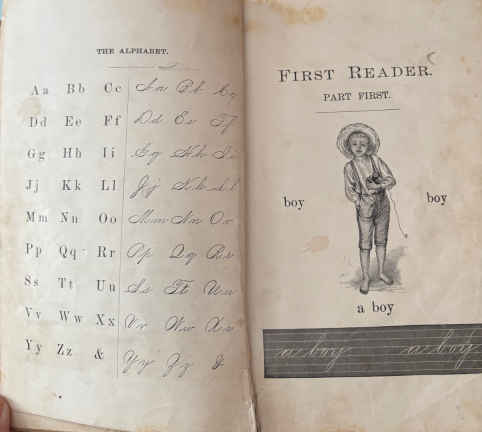 THE ALPHABET.
Aa Bb Cc Aa Bb Cc
Dd Ee Ff Dd Ee Ff
Gg Hh Ii Gg Hh Ii
Jj Kk Ll Jj Kk Ll
Mm Nn Oo Mm Nn Oo
Pp Qq Rr Pp Qq Rr
Ss Tt Uu Ss Tt Uu
Vv Ww Xx Vv Ww Xx
Yy Zz & Yy Zz &
FIRST READER.
PART FIRST.
boy boy
a boy
a boy a boy